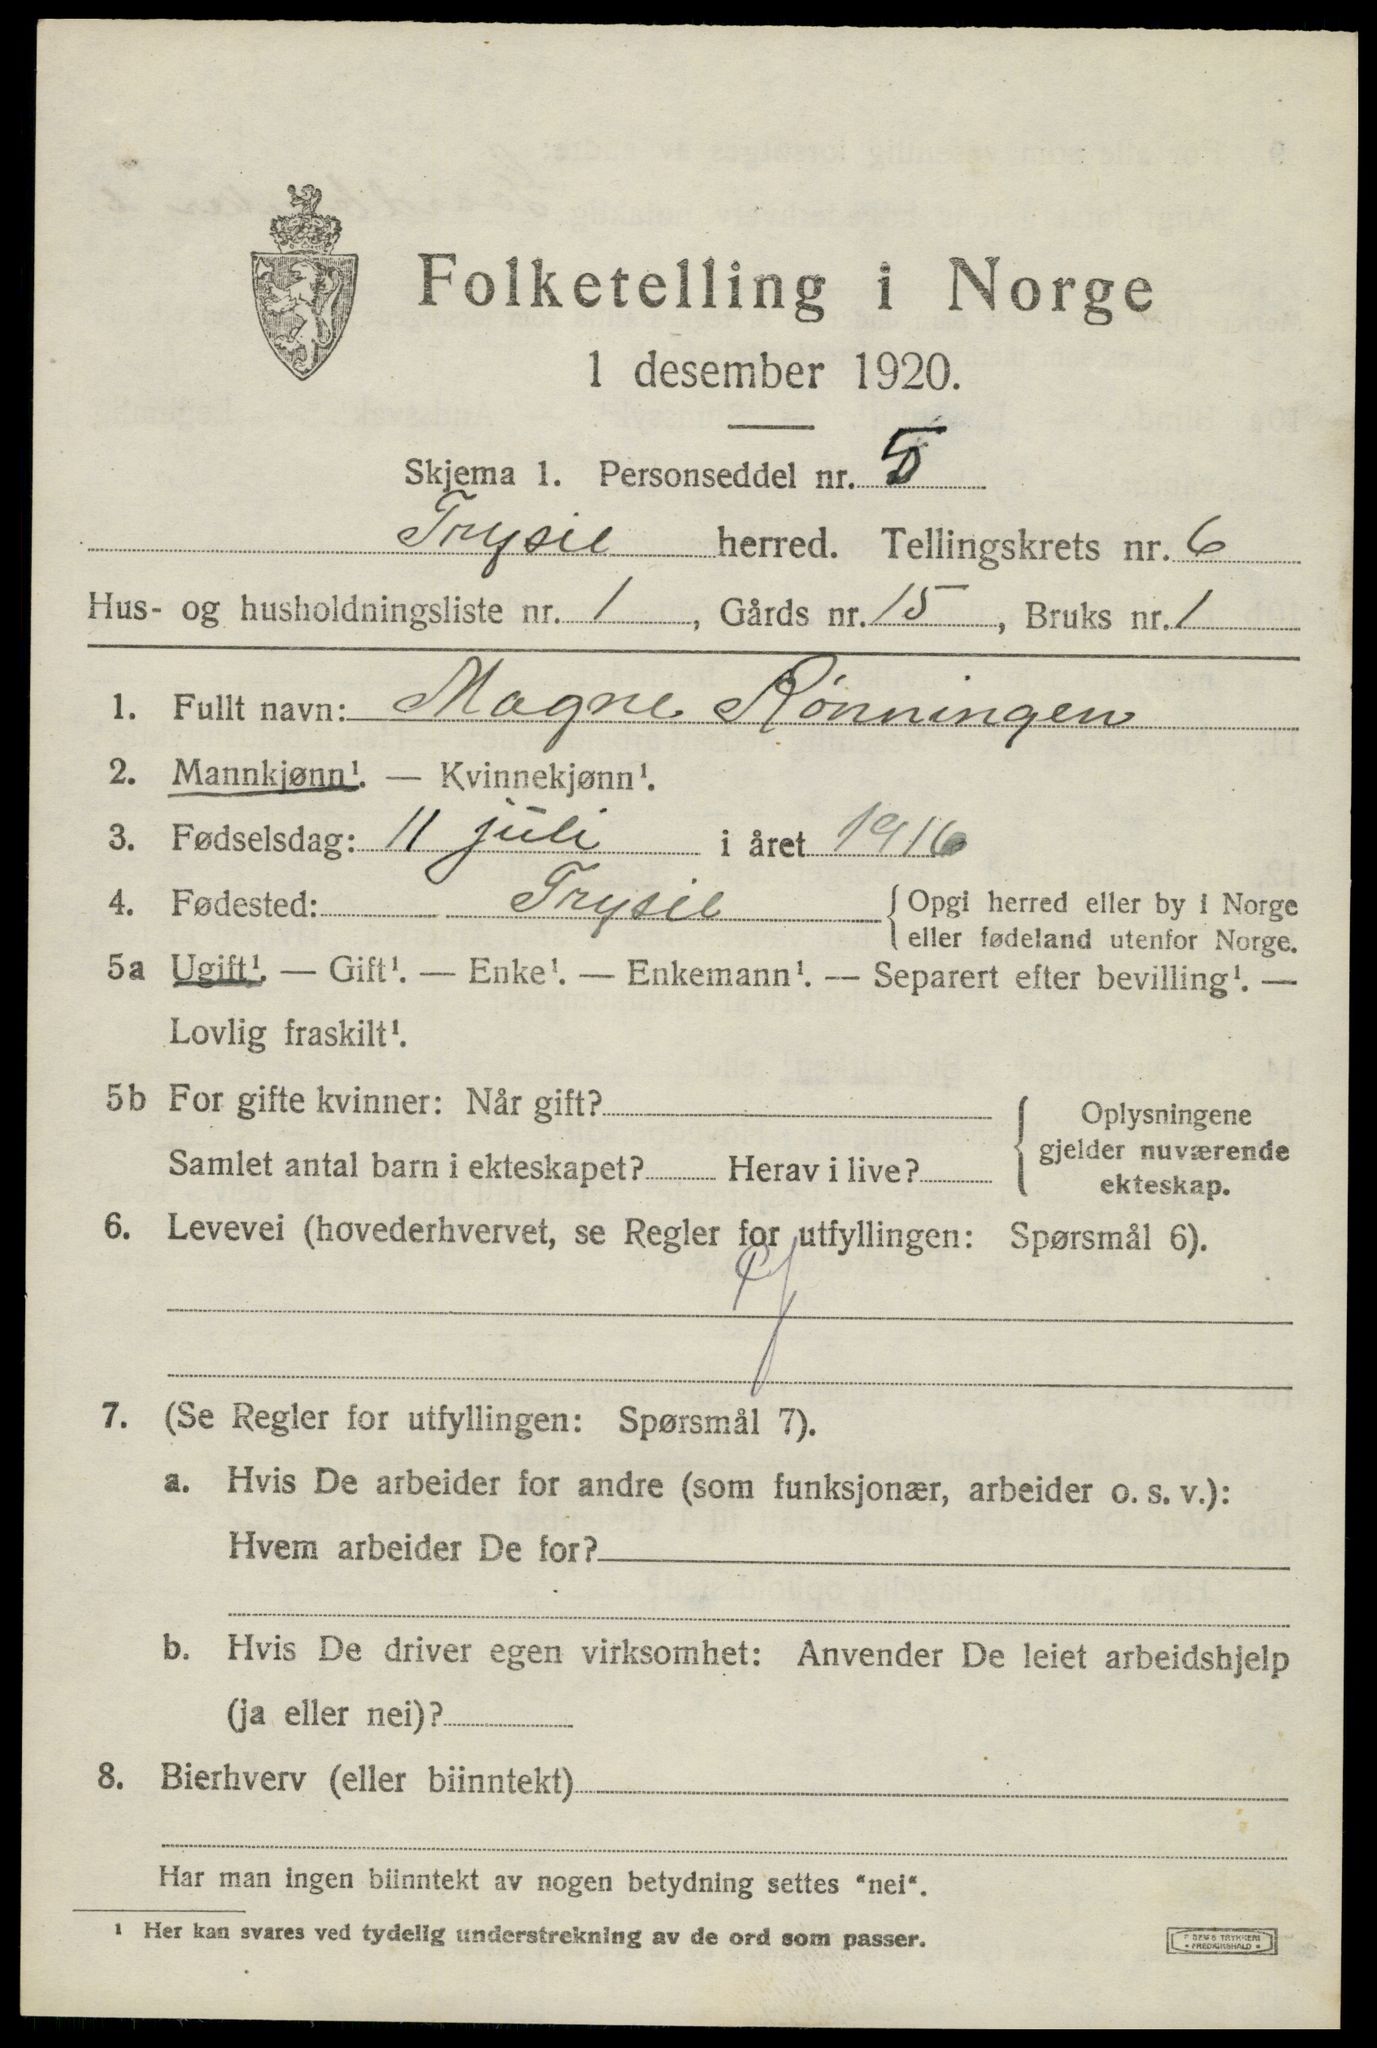 Folketelling i Norge
1 desember 1920.
Skjema 1. Personseddel nr. 5
Trysil herred. Tellingskrets nr. 6
Hus- og husholdningsliste nr. 1, Gårds nr. 15, Bruks nr. 1
1. Fullt navn: Magne Rønningen
2. Mannkjønn¹. — Kvinnekjønn¹.
3. Fødselsdag: 11 juli i året 1916
4. Fødested: Trysil {Opgi herred eller by i Norge
eller fødeland utenfor Norge.
5a Ugift¹. — Gift¹. — Enke¹. — Enkemann¹. — Separert efter bevilling¹. —
Lovlig fraskilt¹.
5b For gifte kvinner: Når gift? { Oplysningene
gjelder nuværende
Samlet antal barn i ekteskapet? Herav i live?
ekteskap.
6. Levevei (hovederhvervet, se Regler for utfyllingen: Spørsmål 6).
7. (Se Regler for utfyllingen: Spørsmål 7).
a. Hvis De arbeider for andre (som funksjonær, arbeider o. s. v.):
Hvem arbeider De for?
b. Hvis De driver egen virksomhet: Anvender De leiet arbeidshjelp
(ja eller nei)?
8. Bierhverv (eller biinntekt)
Har man ingen biinntekt av nogen betydning settes "nei".
¹ Her kan svares ved tydelig understrekning av de ord som passer.
TRYKKERI
FREDRIKSHALD